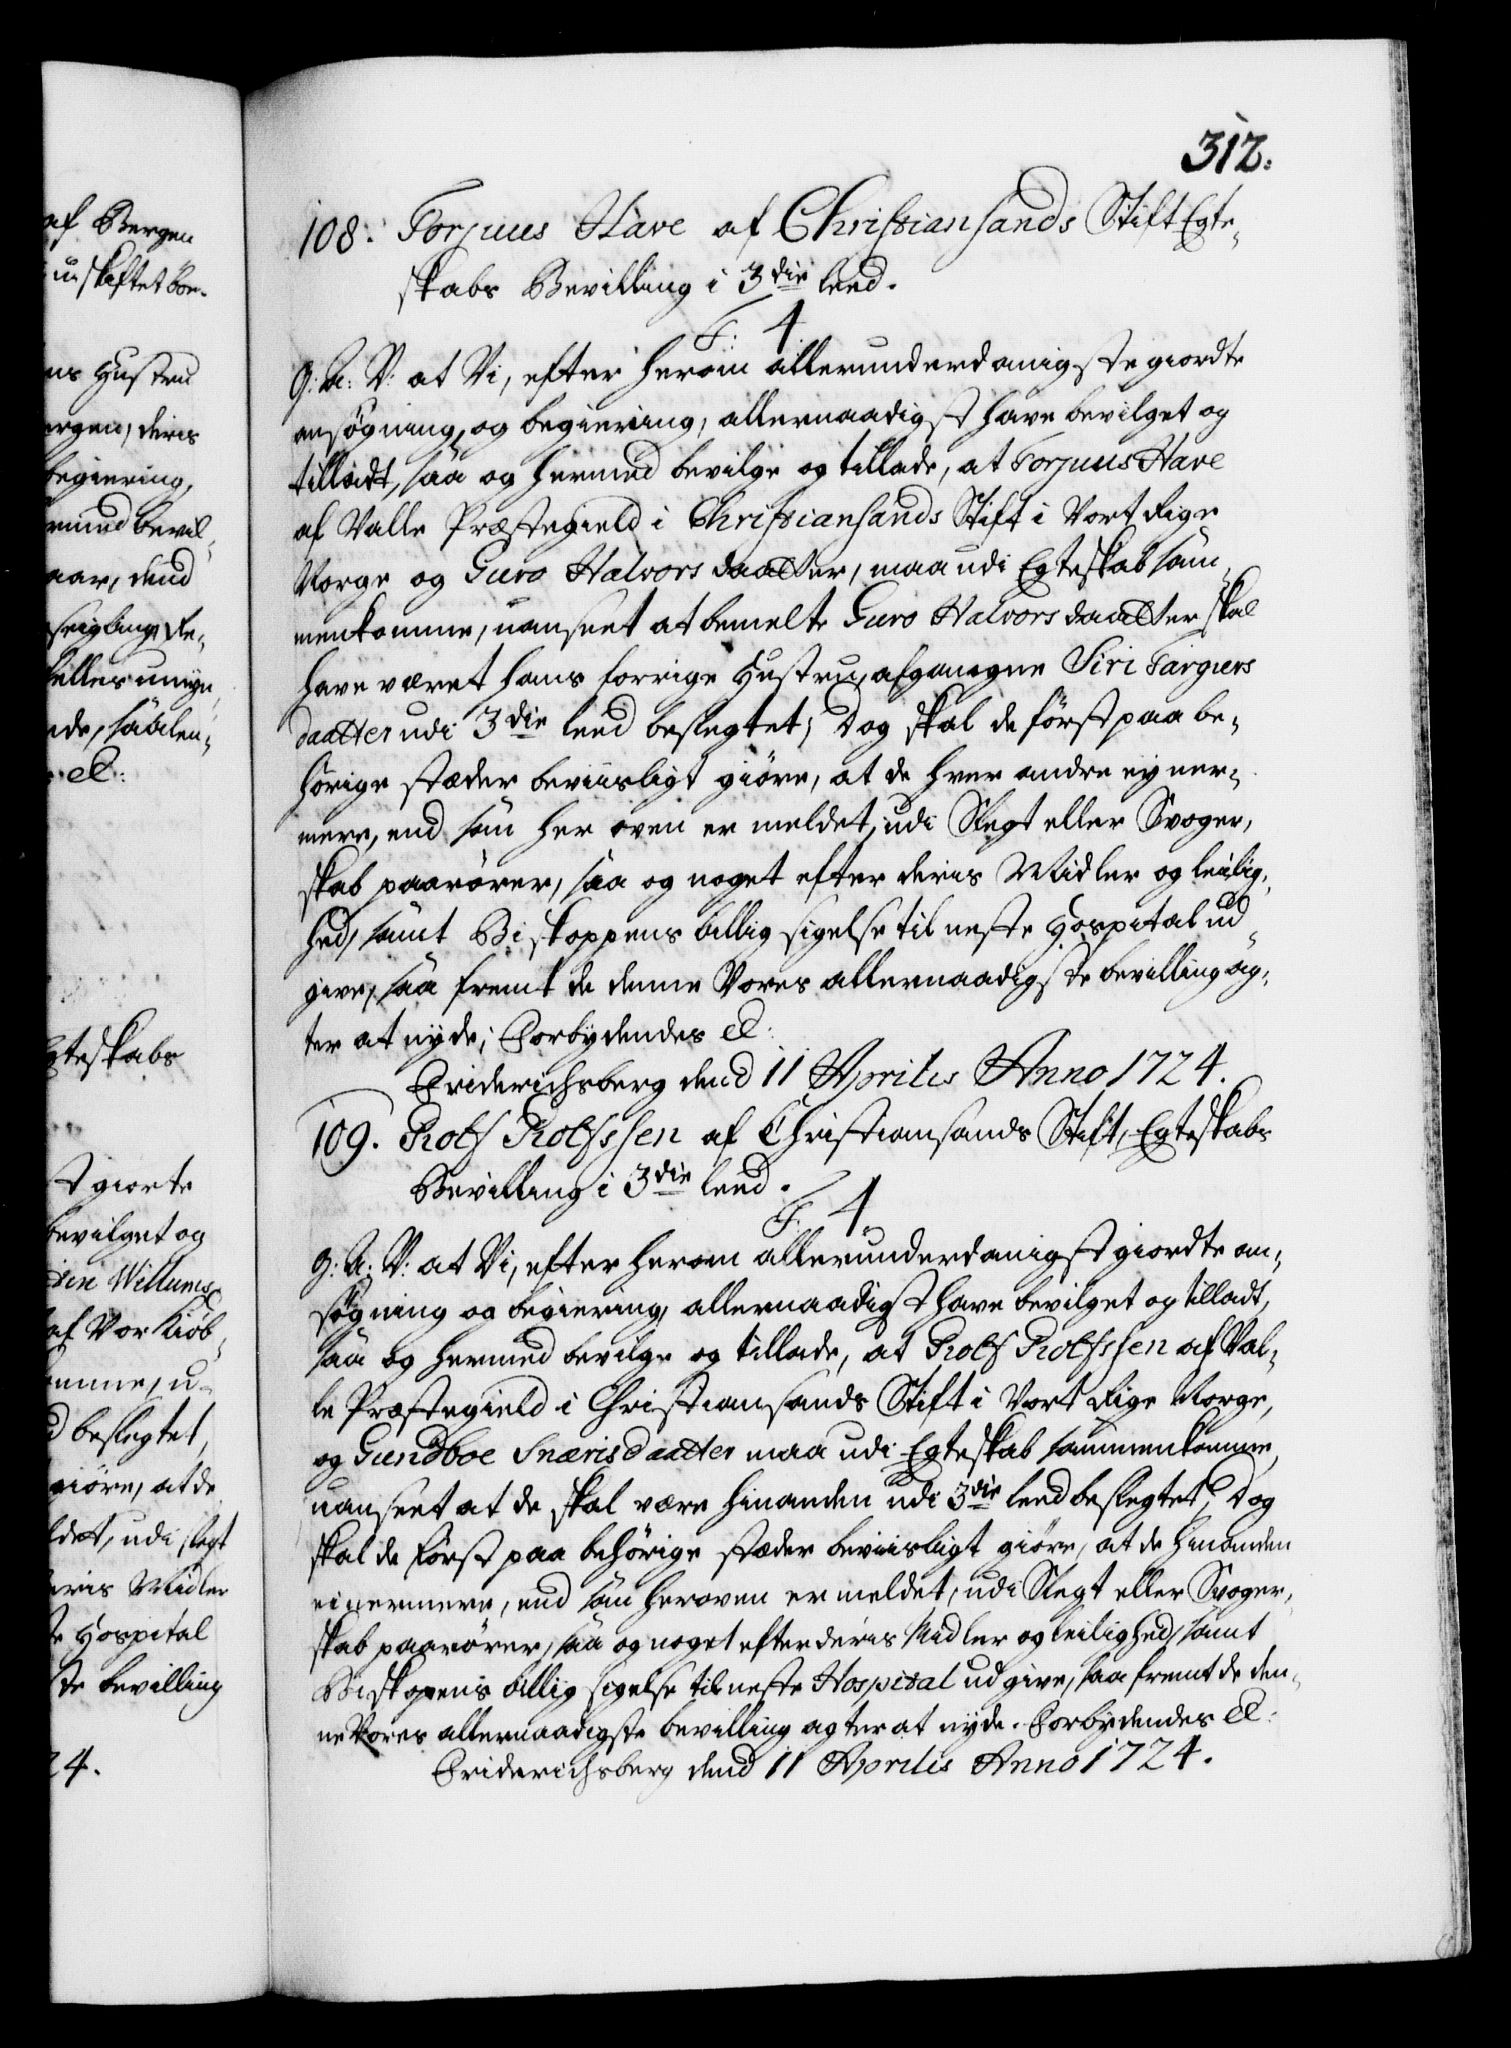 af Bergen
u-skiftet Boe.
ns Hustru
ergen, deris
begiering,
rmed bevil-
aar, dend
beseigling Re-
nde, saalen-
etc:
Egteskabs
st giorte
bevilget og
Willums
af Vor Kiøb-
omme, u-
d beslegtet,
giøre, at de
ldet, udi slegt
deris Midler
te Hospital
ste bevilling
24.
312.
108. Torjuus Have af Christiansands Stift Egte-
skabs Bevilling i 3die leed.
F: 4
G: A: V: at Vi, efter herom allerunderdanigste giordte
ansøgning, og begiering, allernaadigst have bevilget og
tilladt, saa og hermed bevilge og tillade, at Torjuus Have
af Valle Præstegield i Christiansands Stift i Vort Rige
Norge og Guro Halvors daatter, maa udi Egteskab sam-
menkomme, uanseet at bemelte Guro Halvors daatter skal
have været hans forrige Hustru, afgangne Siri Targiers
daatter udi 3die leed beslegtet; Dog skal de først paa be-
hørige stæder beviisligt giøre, at de hver andre ey ner-
mere, end som her oven er meldet, udi Slegt eller Svoger-
skab paarører, saa og noget efter deris Midler og leilig-
hed, samt Biskoppens billig sigelse til neste Hospital ud-
give, saa fremt de denne Vores allernaadigste bevilling ag-
ter at nyde; Forbydendes etc:
Friderichsberg dend 11 Aprilis Anno 1724.
109. Rolf Rolfssen af Christiansands Stift, Egteskabs
Bevilling i 3die leed.
F: 4
G: A: V: at Vi, efter herom allerunderdanigst giordte an-
søgning og begiering, allernaadigst have bevilget og tilladt,
saa og hermed bevilge og tillade, at Rolf Rolfssen af Val-
le Præstegield i Christiansands Stift i Vort Rige Norge,
og Gundboe Snæris daatter maa udi Egteskab sammenkomme,
uanseet at de skal være hinanden udi 3die leed beslegtet; Dog
skal de først paa behørige stæder beviisligt giøre, at de hinanden
ei nermere, end som heroven er meldet, udi Slegt eller Svoger-
skab paarører, saa og noget efter deris Midler og leilighed, samt
Biskopens billig sigelse til neste Hospital udgive, saa fremt de den-
ne Vores allernaadigste bevilling agter at nyde. Forbydendes etc:
Friderichsberg dend 11 Aprilis Anno 1724.